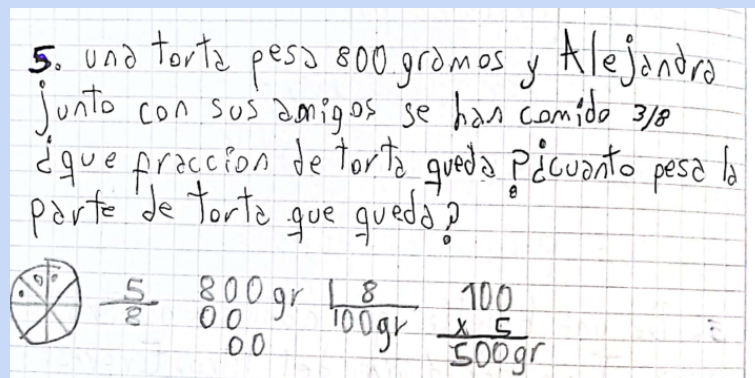 5. una torta pesa 800 gramos y Alejandra
junto con sus amigos se han comido 3/8
¿que fraccion de torta queda? ¿cuanto pesa la
parte de torta que queda?
5/8 800gr | 8 100
00 100gr x 5
00 500gr